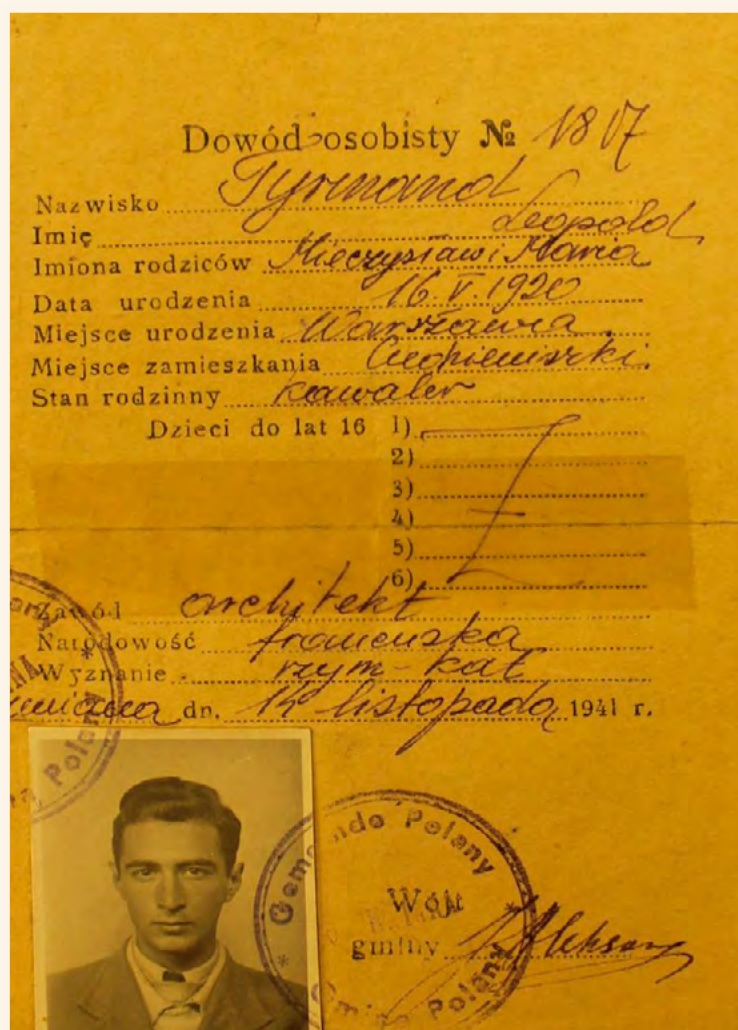 Dowód osobisty № 1817
Nazwisko Tyrmand
Imię Leopold
Imiona rodziców Mieczysław i Maria
Data urodzenia 16.V.1920
Miejsce urodzenia Warszawa.
Miejsce zamieszkania
Stan rodzinny kawaler
Dzieci do lat 16 1)
2)
3)
4)
5)
6)
Zawód architekt
Narodowość francuska
Wyznanie rzym-kat
dn. 14 listopada 1941 r.
Gemeinde Polany
Wójt
gminy
Gmina Polany